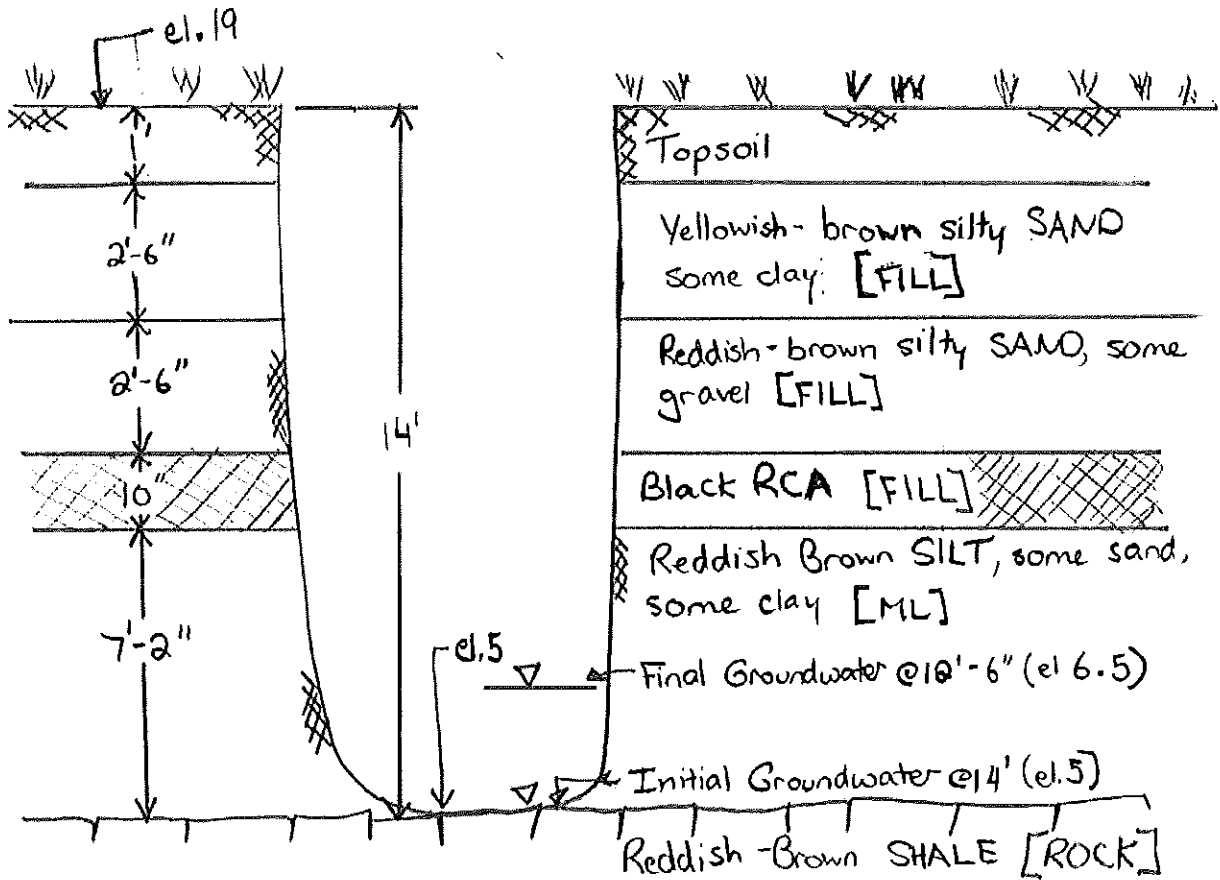 el.19
1'
Topsoil
2'-6"
Yellowish-brown silty SAND
some clay. [FILL]
2'-6"
Reddish-brown silty SAND, some
gravel [FILL]
14'
10"
Black RCA [FILL]
Reddish Brown SILT, some sand,
some clay [ML]
7'-2"
el.5
Final Groundwater @12'-6" (el 6.5)
Initial Groundwater @14' (el.5)
Reddish-Brown SHALE [ROCK]